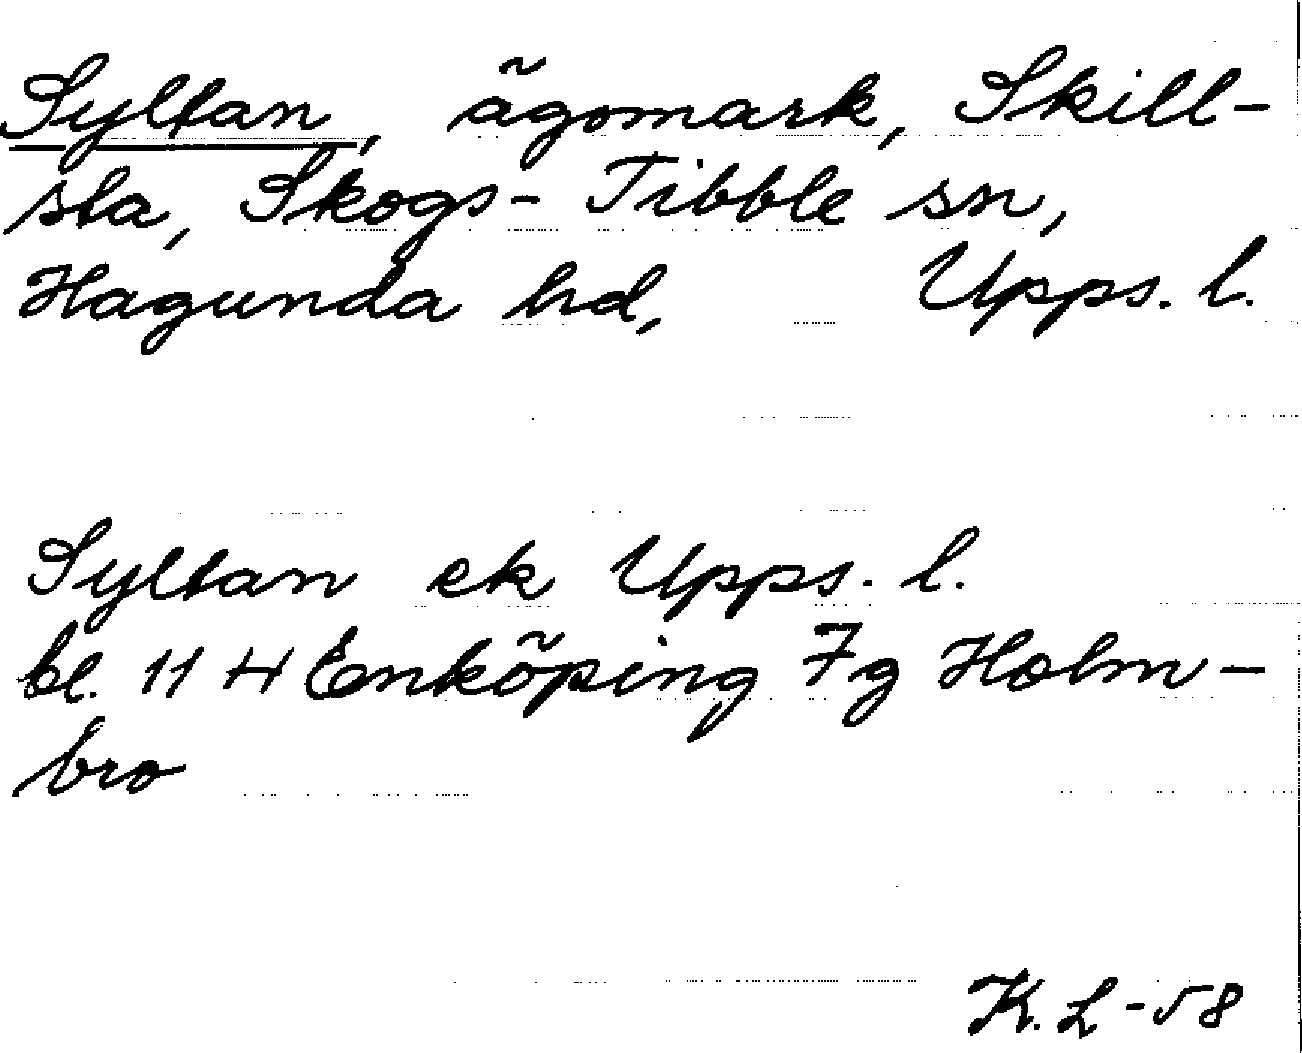 Syltan, ägomark, Skill-
sta, Skogs-Tibble sn,
Hagunda hd, Upps. l.
Syltan ek Upps. l.
bl. 11 H Enköping 7g Holm-
bro
K. L -58